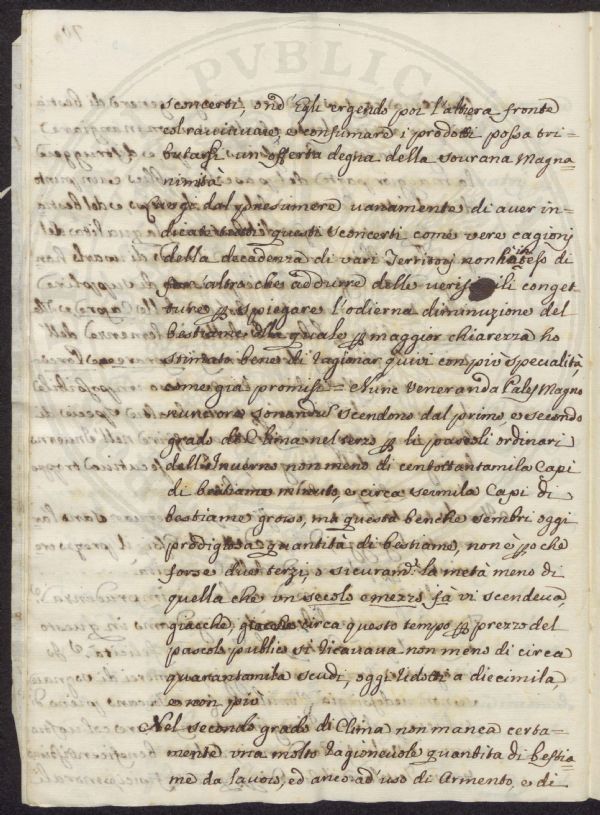 sconcerti, ond' Egli ergendo poi l'altera fronte
col ravvivare, e consumare i prodotti possa tri=
butarsi un'offerta degna della sourana Magna
nimità
Lungi dal presumere vanamente di aver in=
dicate tutti questi sconcerti come vere cagionj
della decadenza di varj Territorj non hò inteso di
far altro che addurre delle veris ili conget
ture p spiegare l'odierna diminuzione del
bestiame, della quale p maggior chiarezza ho
stimato bene di ragionar quivi con più specialità,
come già promisi = Nunc Veneranda Pales Magno
nunc ore sonandus scendono dal primo, e secondo
grado di Clima nel terzo p li pascoli ordinarj
dell'Inverno non meno di centottantamila Capi
di bestiame minuto, e circa seimila Capi di
bestiame grosso, ma questa benche sembri oggi
prodigiosa quantità di bestiame, non è pò che
forse due terzi, o sicuram.te la metà meno di
quella che un secolo e mezzo fa vi scendeva,
giacche, giacche circa questo tempo p prezzo del
pascolo publico si ricavava non meno di circa
quarantamila scudi, oggi ridotti a diecimila,
e non più
Nel secondo grado di Clima non manca certa=
mente una molto ragionevole quantità di Bestia=
me da lavoro, ed anco ad uso di Armento, e di